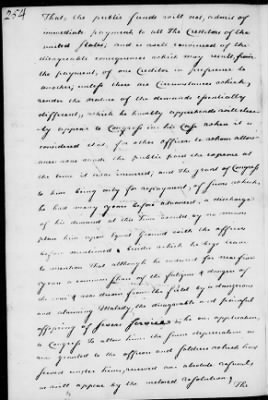 254
That, the public funds will not, admit of
immediate payment to all the Creditors of the
united States; and is well convinced of the
disagreable consequences which may result, from
the payment, of one Creditor in preference to
another, unless there are Circumstances which,
render the nature of the demands essentially
different, which he humbly apprehends will there
by appear to Congress in his Case when it is
considered
the public paid the
the time it was incurred, and the grant of Congress
to him being only for repayment, of sums which,
he had many years before advanced, a discharge
of his demand at this time could by no means
place him upon equal Ground with the officers
before mentioned & besides which he begs leave
to mention That although he endured for near five
years a common share of the fatigue & dangers of
the war & was driven from the field by a dangerous
and alarming Malady, the disagreable and painful
offspring of severe Service on his application,
to Congress to allow him the same depreciation as
was granted to the officers and soldiers which had
served under him, received an absolute refusal,
as will appear by the inclosed resolution, The